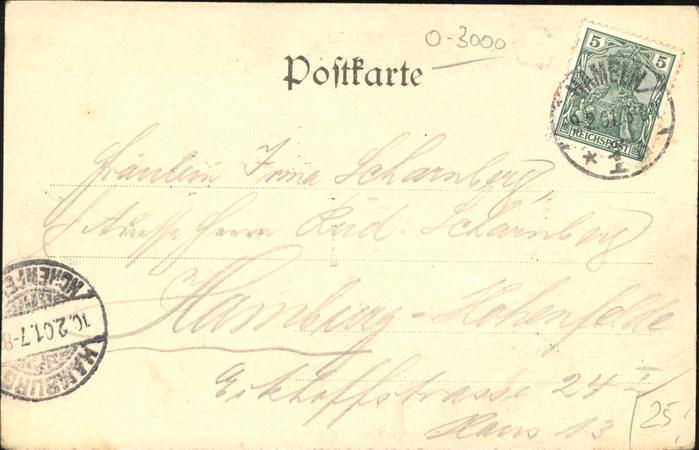 0-3000
Postkarte
5 5
HAMELN
REICHSPOST
* 1 *
Fräulein Irma Scharnberg,
Adresse Herrn Rud. Scharnberg
Hamburg-Hohenfelde
Eckhoffstrasse 24 I
Haus 13
25.
10.2.01.7-8
HAMBURG